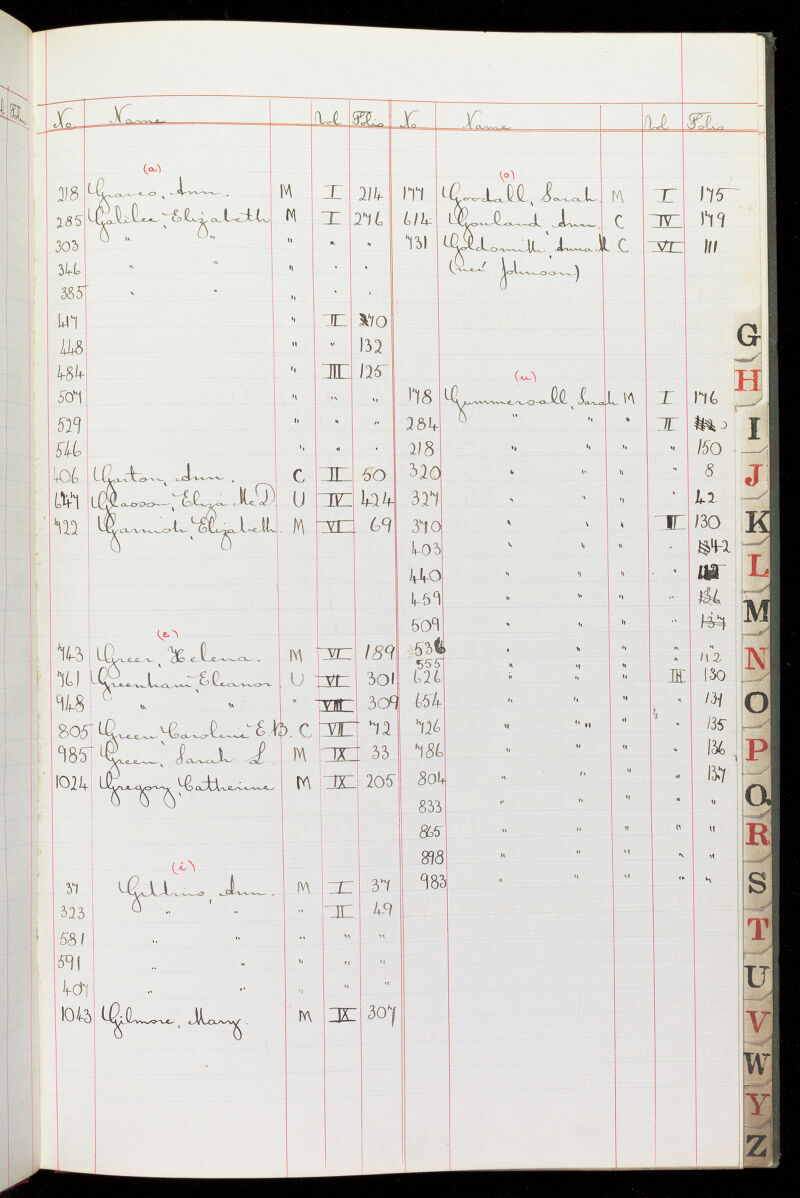 No Name Vol Folio
(a)
218 Graves, Ann. M I 214
285 Galilee, Elizabeth M I 276
303 " " " " "
346 " " " " "
385 " " " " "
417 " II 70
448 " " 132
484 " III 125
507 " " "
529 " " "
546 " " "
406 Garton, Ann. C II 50
647 Glasson, Eliza McD U IV 424
722 Garnish, Elizabeth. M VI 69
(e)
743 Greer, Helena. M VI 189
761 Greenham, Eleanor U VI 301
948 " " " VIII 309
805 Green, Caroline E.B. C VII 72
985 Green, Sarah L M IX 33
1024 Gregory, Catherine M IX 205
(i)
37 Gittins, Ann. M I 37
323 " " " II 49
581 " " " " "
591 " " " " "
407 " " " " "
1043 Gilmore, Mary. M IX 307
No Name Vol Folio
(o)
177 Goodall, Sarah M I 175
614 Gowland, Ann. C IV 179
731 Goldsmith, Anna M C VI 111
(neé Johnson)
(u)
178 Gummersall, Sarah M I 176
284 " " " II
218 " " " " 150
320 " " " " 8
327 " " " " 42
370 " " " 130
403 " " " "
440 " " " "
459 " " " " 136
509 " " " 137
536 " " " " "
555 " " " " 112
626 " " " III 130
654 " " " " 134
726 " " " " " 135
786 " " " " 136
804 " " " " 137
833 " " " " "
865 " " " " "
898 " " " " "
983 " " " " "
G
H
I
J
K
L
M
N
O
P
Q
R
S
T
U
V
W
Y
Z